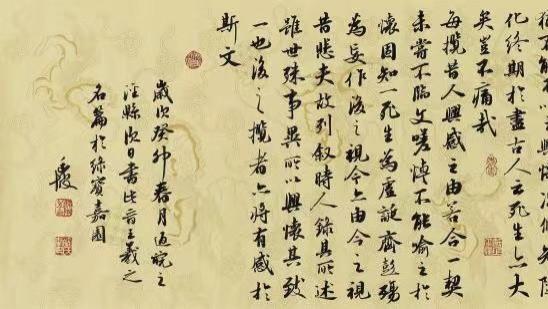 不能不以之興懷況修短隨
化終期於盡古人云死生亦大
矣豈不痛哉
每攬昔人興感之由若合一契
未嘗不臨文嗟悼不能喻之於
懷固知一死生為虛誕齊彭殤
為妄作後之視今亦由今之視
昔悲夫故列敘時人錄其所述
雖世殊事異所以興懷其致
一也後之攬者亦將有感於
斯文
歲次癸卯春月過皖之
涇縣次日書此晉王羲之
名篇於綠寶嘉園